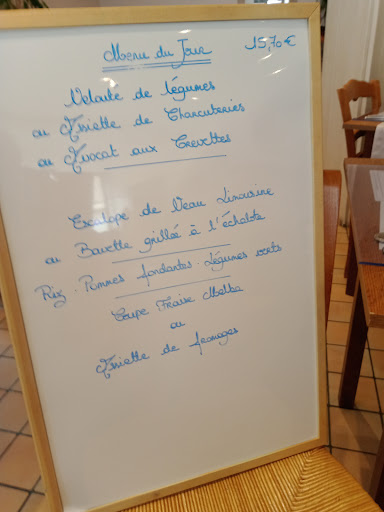 Menu du Jour 15,70€
Velouté de légumes
ou Assiette de Charcuteries
ou Avocat aux Crevettes
Escalope de Veau Limousine
ou Bavette grillée à l'échalote
Riz - Pommes fondantes - Légumes verts
Coupe Fraise Melba
ou
Assiette de fromages